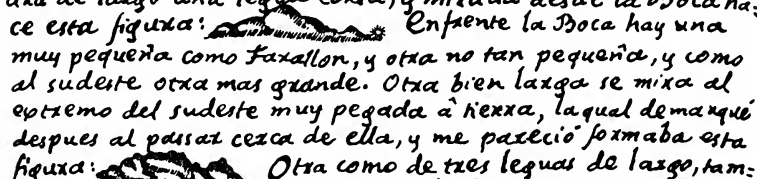 de largo una legua corta, y mirada desde la Boca ha:
ce esta figura: Enfrente la Boca hay una
muy pequeña como Farallon, y otra no tan pequeña, y como
al sudeste otra mas grande. Otra bien larga se mira al
extremo del sudeste muy pegada â tierra, la qual demarqué
despues al passar cerca de ella, y me pareció formaba esta
figura: Otra como de tres leguas de largo, tam=